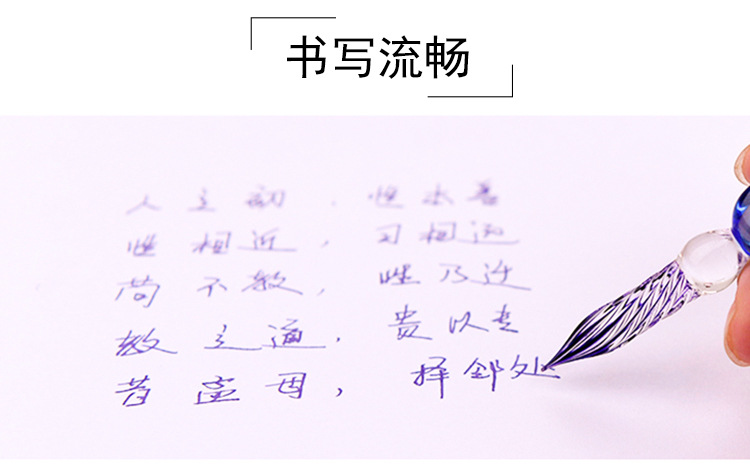 书写流畅
人之初，性本善
性相近，习相远
苟不教，性乃迁
教之道，贵以专
昔孟母，择邻处